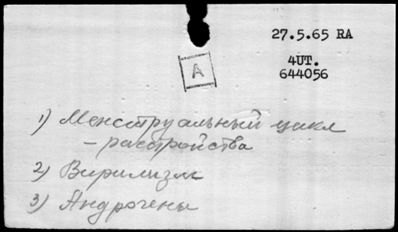 27.5.65 RA
4UT.
644056
A
1) Менструальный цикл
– расстройства
2) Вирилизм
3) Андрогены